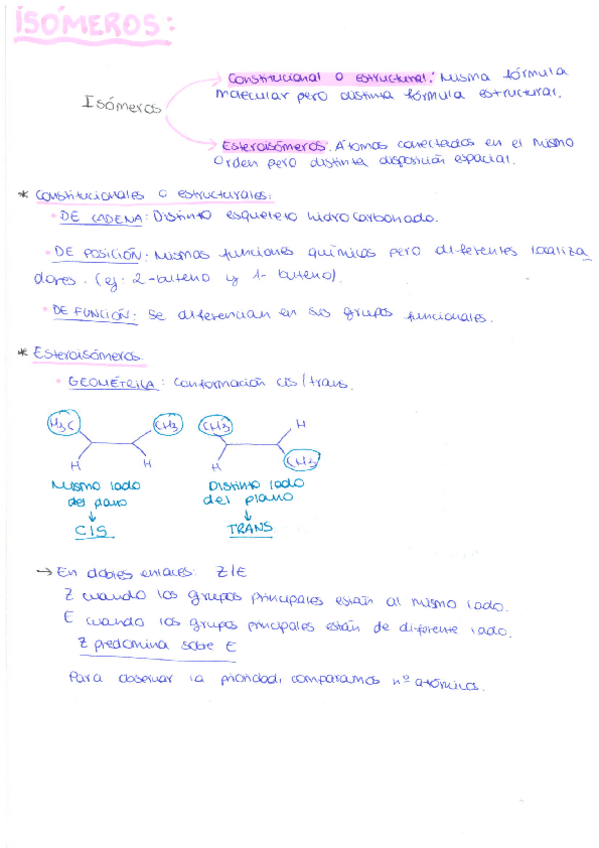 ISÓMEROS:
Constitucional o estructural: Misma fórmula
molecular pero distinta fórmula estructural.
Isómeros
Esteroisómeros. Átomos conectados en el mismo
orden pero distinta disposición espacial.
* Constitucionales o estructurales:
• DE CADENA: Distinto esqueleto hidrocarbonado.
• DE POSICIÓN: Mismas funciones químicas pero diferentes localiza
dores. (ej: 2-buteno y 1-buteno).
• DE FUNCIÓN: Se diferencian en sus grupos funcionales.
* Esteroisómeros:
• GEOMÉTRICA: Conformación cis/trans.
H3C CH3 CH3 H
H H H CH3
Mismo lado Distinto lado
del plano del plano
↓ ↓
CIS TRANS
→ En dobles enlaces: Z/E
Z cuando los grupos principales están al mismo lado.
E cuando los grupos principales están de diferente lado.
Z predomina sobre E
Para observar la prioridad, comparamos nº atómicos.